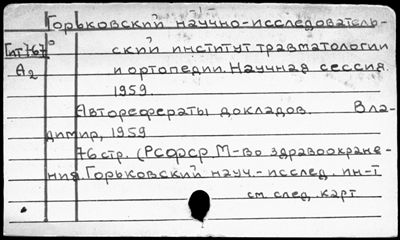 -1-
Горьковский научно-исследователь-
Гит 767 ский институт травматологии
А2 и ортопедии. Научная сессия.
1959.
Авторефераты докладов. Вла-
димир, 1959
76 стр. (РСФСР М-во здравоохране-
ния. Горьковский науч.-исслед. ин-т
см след. карт